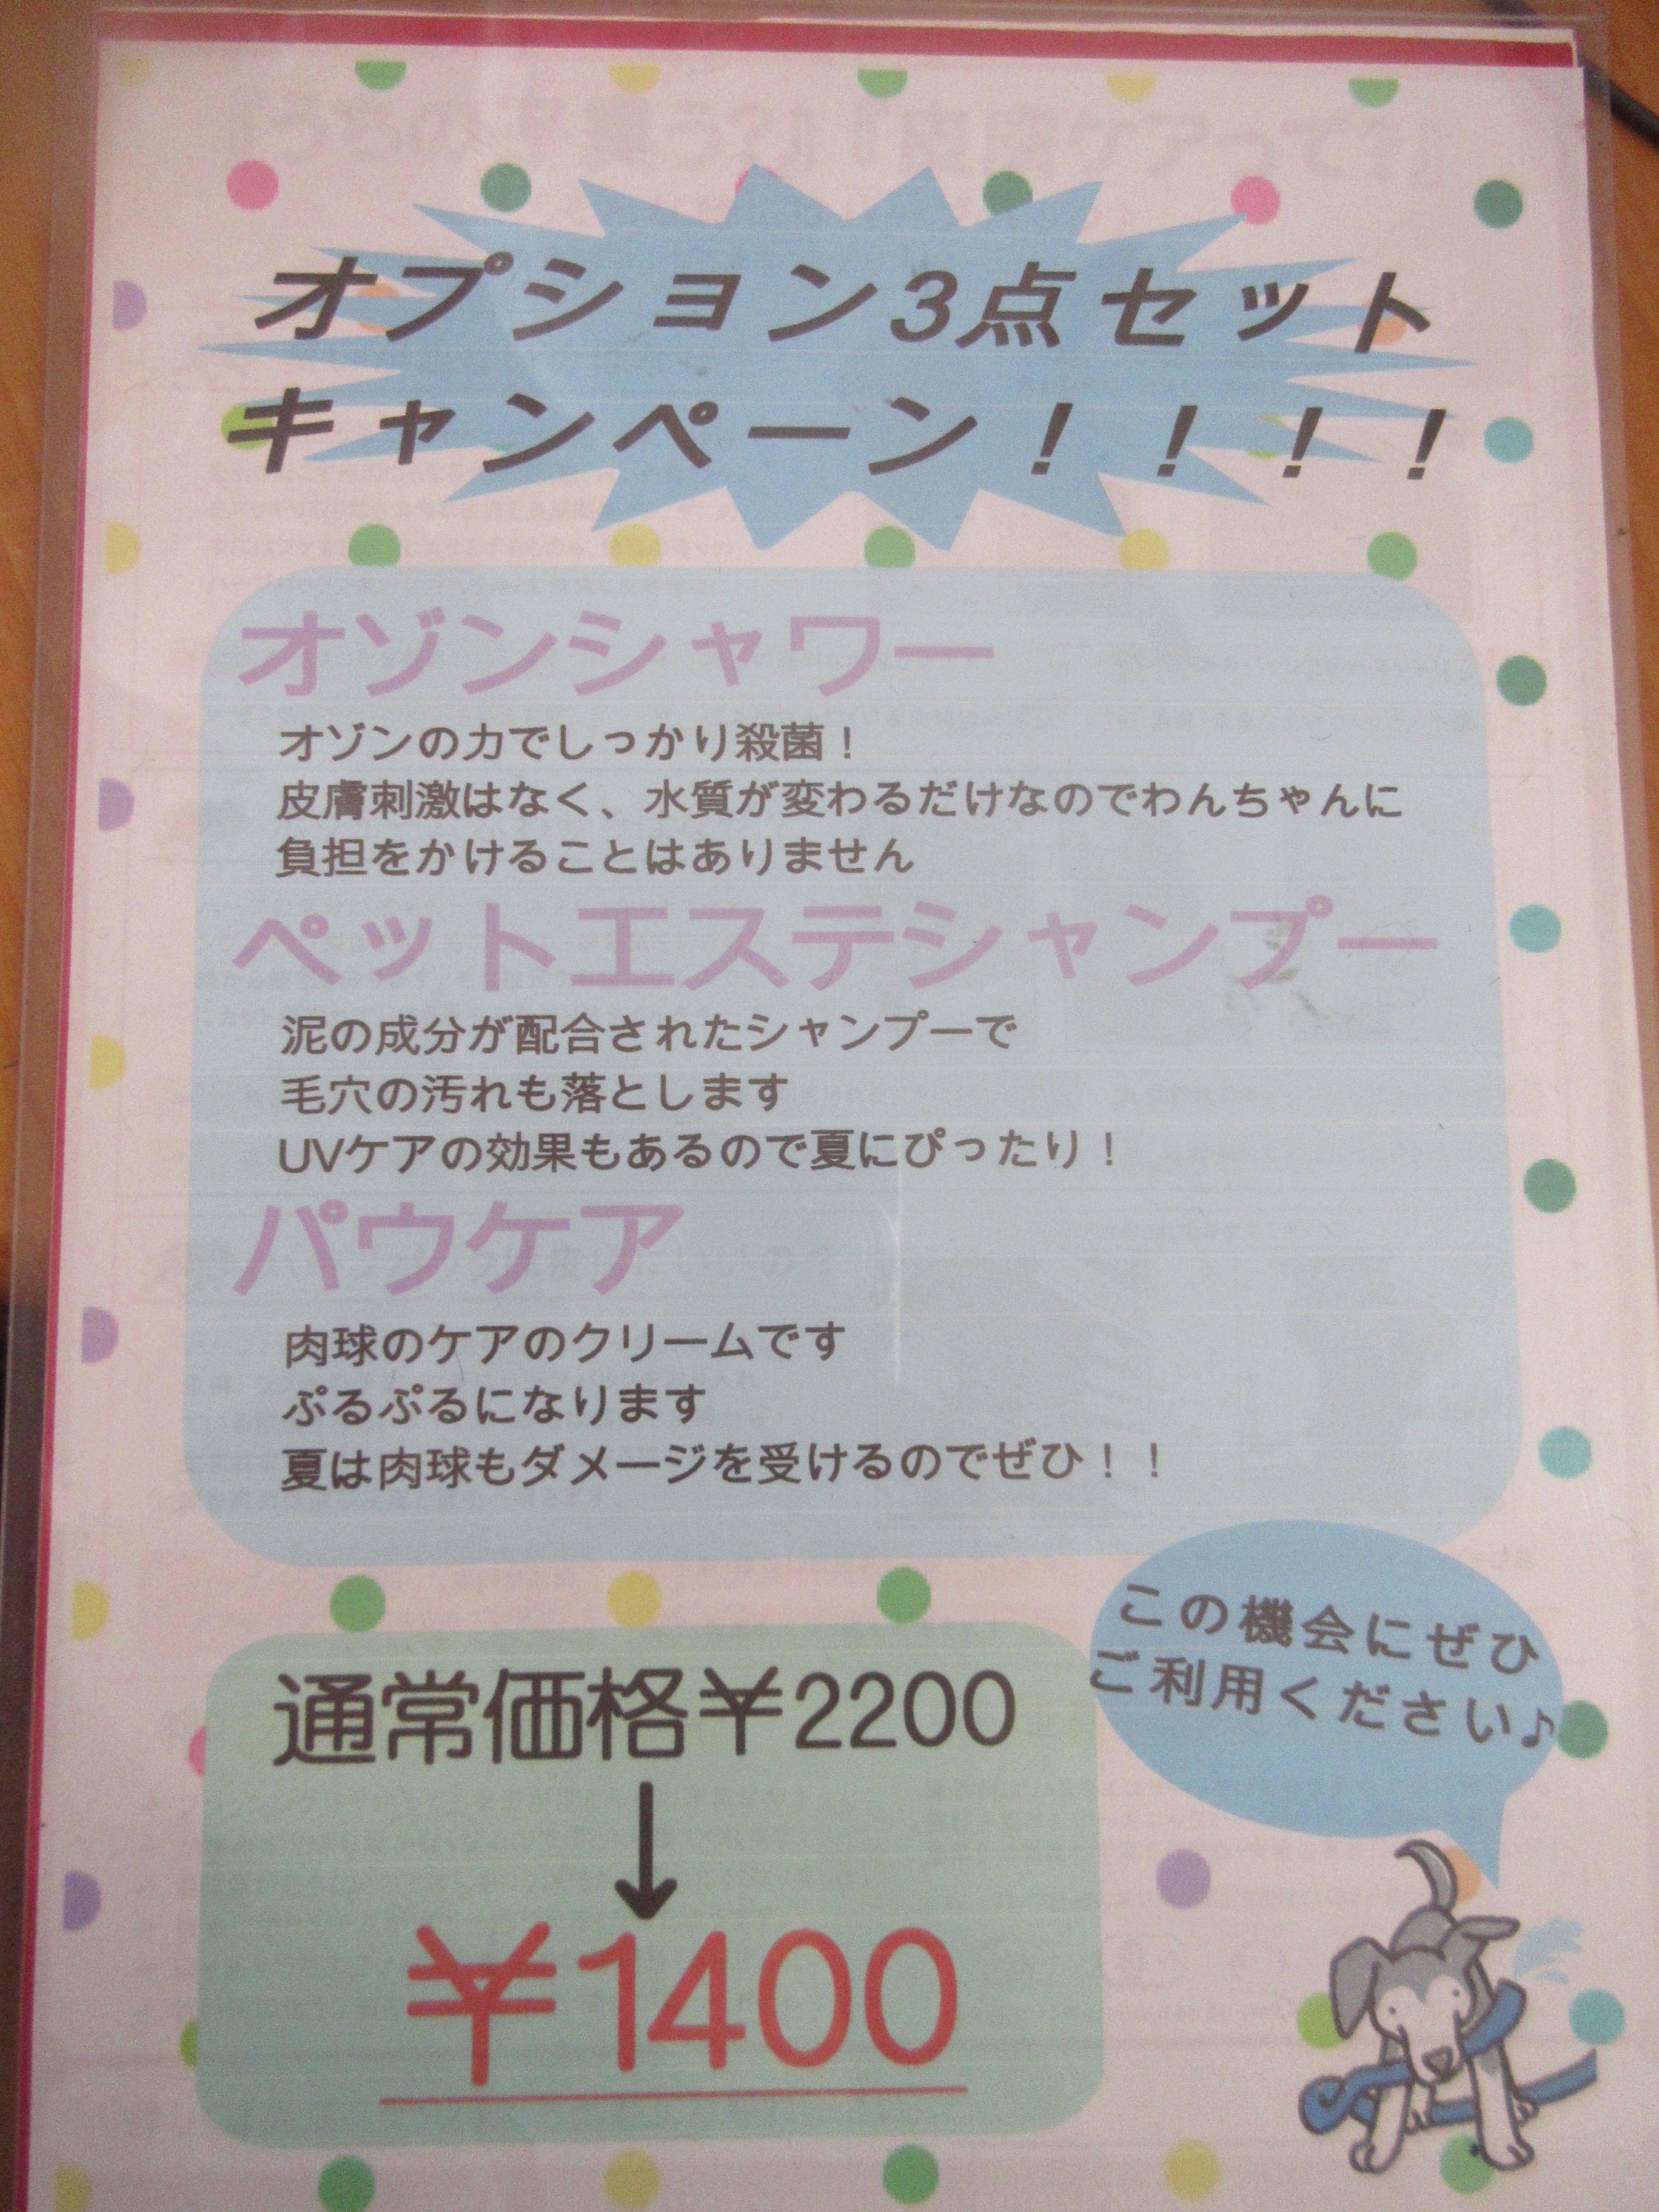 オプション3点セット
キャンペーン！！！！
オゾンシャワー
オゾンの力でしっかり殺菌！
皮膚刺激はなく、水質が変わるだけなのでわんちゃんに
負担をかけることはありません
ペットエステシャンプー
泥の成分が配合されたシャンプーで
毛穴の汚れも落とします
UVケアの効果もあるので夏にぴったり！
パウケア
肉球のケアのクリームです
ぷるぷるになります
夏は肉球もダメージを受けるのでぜひ！！
この機会にぜひ
ご利用ください♪
通常価格￥2200
↓
￥1400